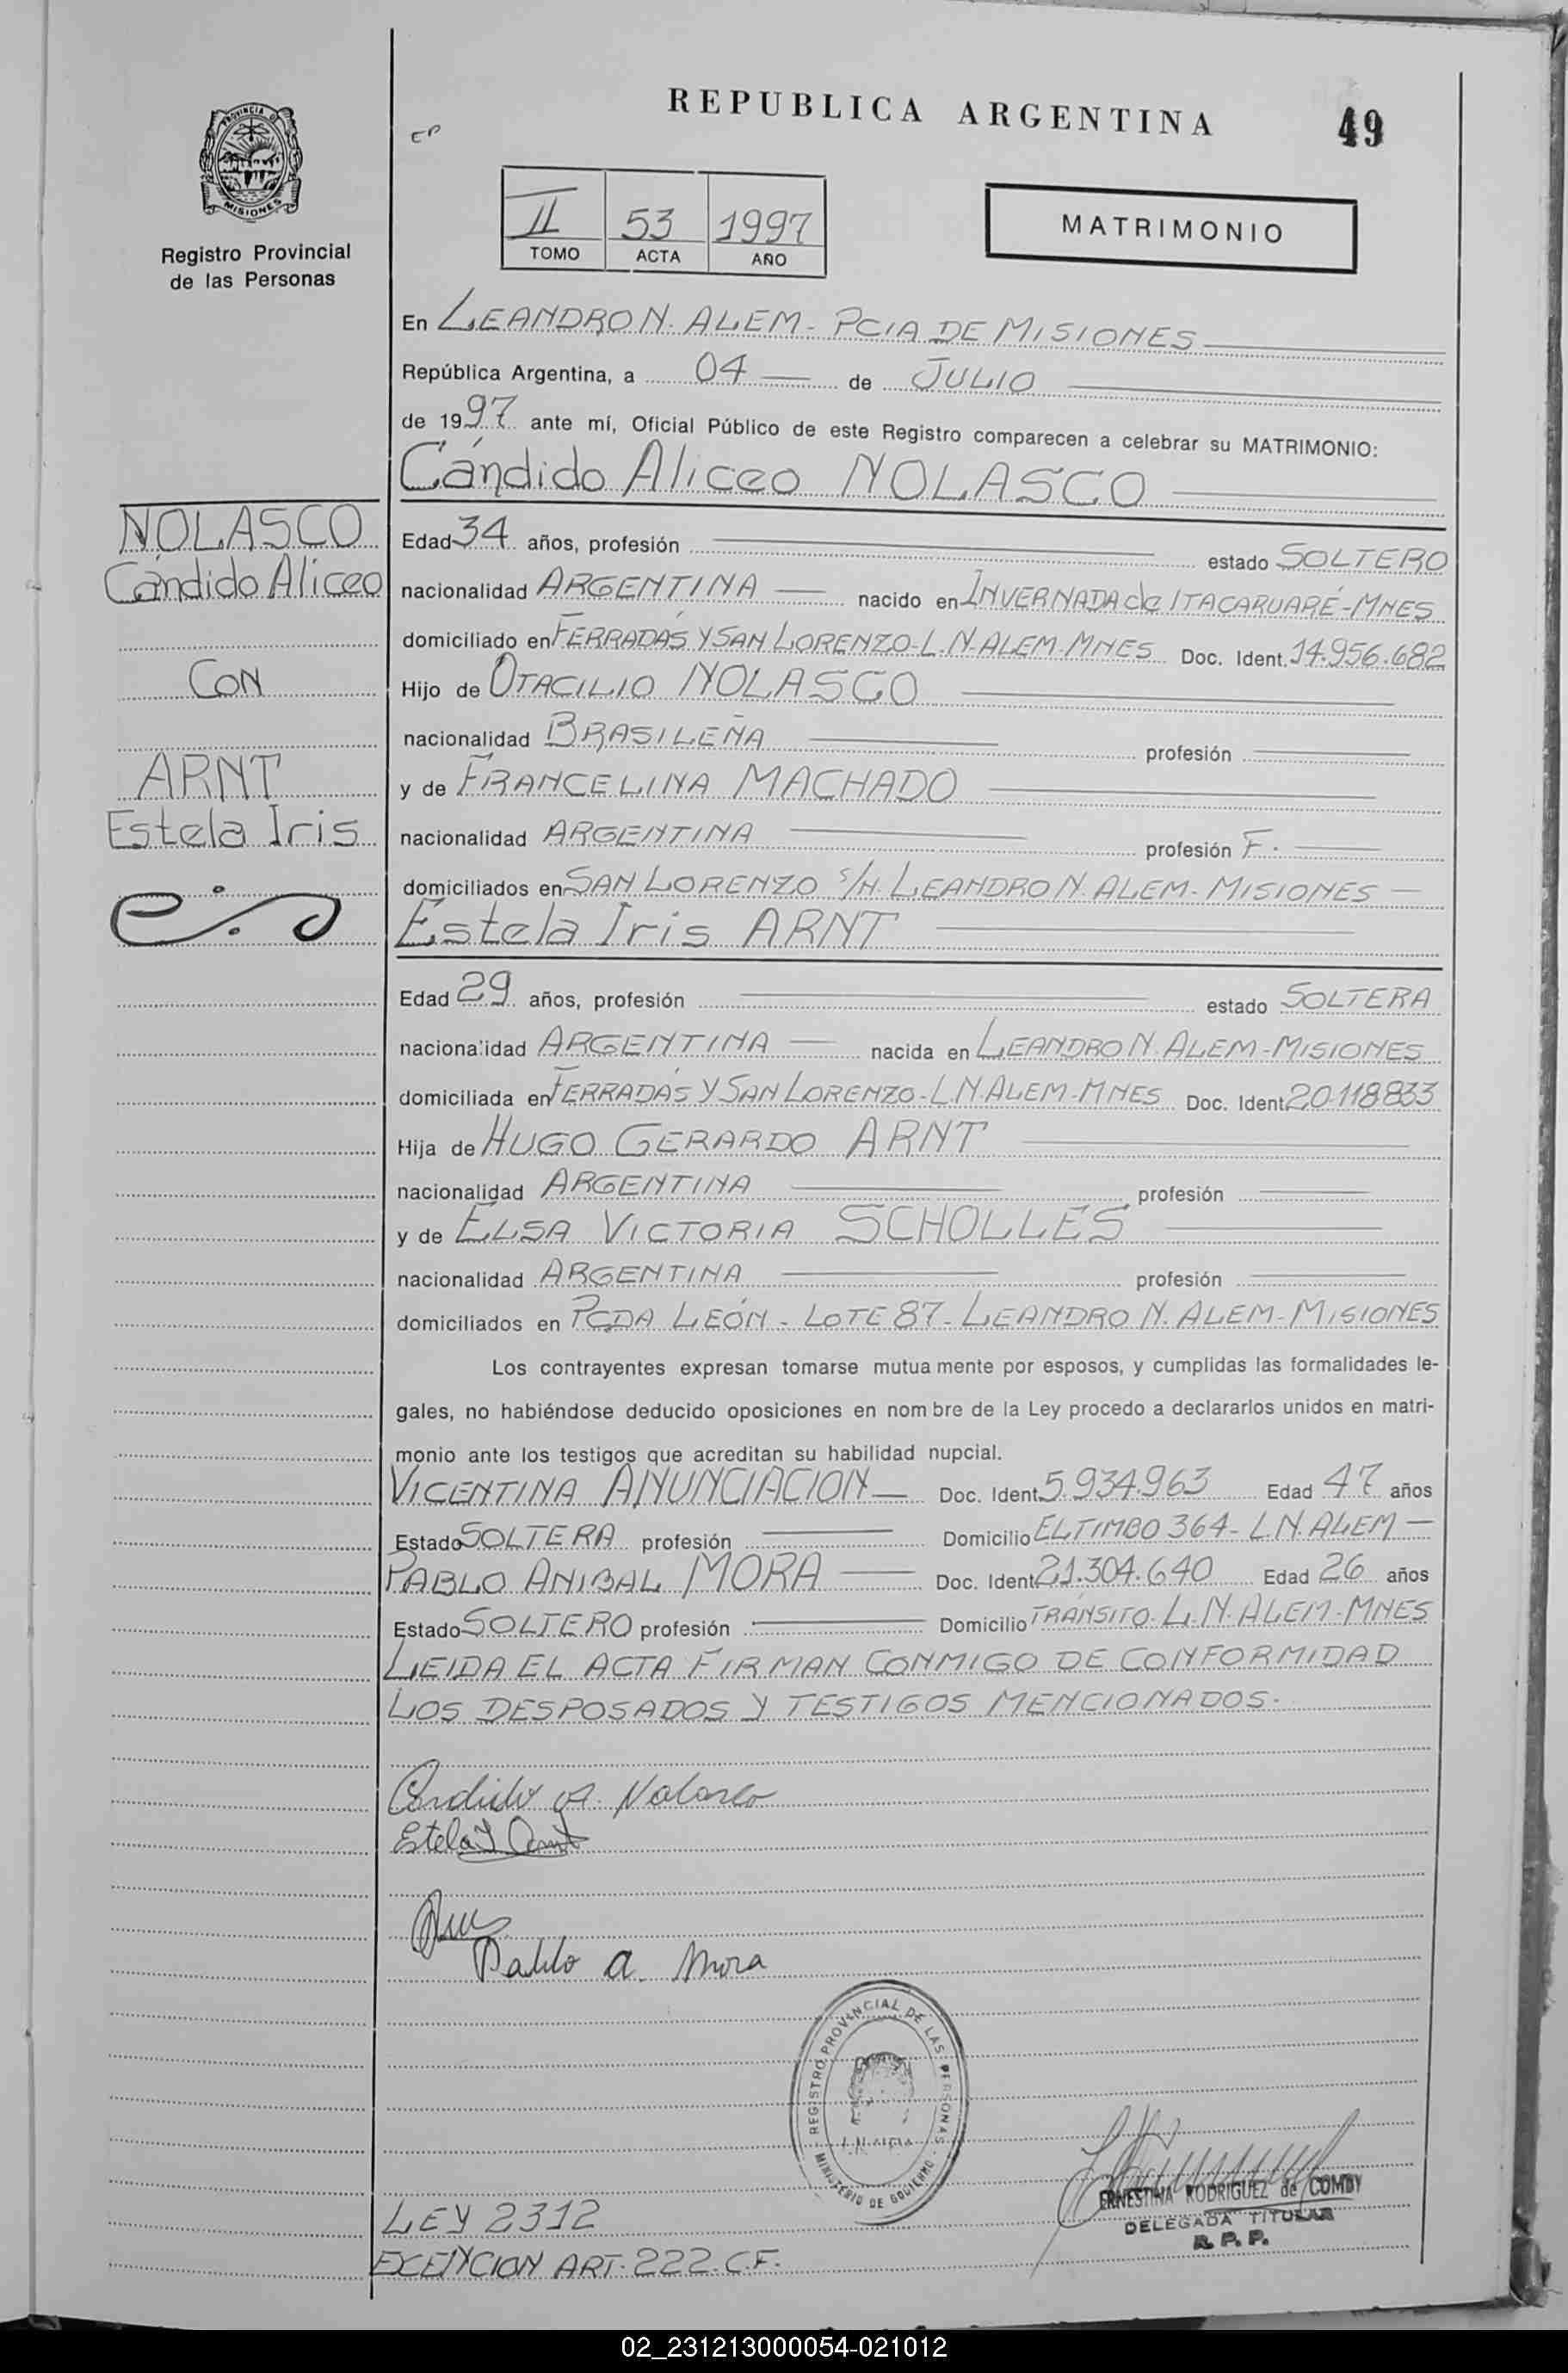 REPUBLICA ARGENTINA
49
PROVINCIA D
MISIONES
Registro Provincial
de las Personas
II 53 1997
TOMO ACTA AÑO
MATRIMONIO
En LEANDRO N. ALEM - PCIA DE MISIONES
República Argentina, a 04 de JULIO
de 1997 ante mí, Oficial Público de este Registro comparecen a celebrar su MATRIMONIO:
Cándido Aliceo NOLASCO
NOLASCO
Cándido Aliceo
CON
ARNT
Estela Iris
Edad 34 años, profesión estado SOLTERO
nacionalidad ARGENTINA nacido en INVERNADA de ITACARUARÉ - MNES
domiciliado en FERRADÁS Y SAN LORENZO - L.N. ALEM - MNES Doc. Ident. 14.956.682
Hijo de OTACILIO NOLASCO
nacionalidad BRASILEÑA profesión
y de FRANCELINA MACHADO
nacionalidad ARGENTINA profesión F.
domiciliados en SAN LORENZO S/N. LEANDRO N. ALEM - MISIONES
Estela Iris ARNT
Edad 29 años, profesión estado SOLTERA
nacionalidad ARGENTINA nacida en LEANDRO N. ALEM - MISIONES
domiciliada en FERRADÁS Y SAN LORENZO - L.N. ALEM - MNES Doc. Ident. 20.118.833
Hija de HUGO GERARDO ARNT
nacionalidad ARGENTINA profesión
y de ELSA VICTORIA SCHOLLES
nacionalidad ARGENTINA profesión
domiciliados en PCDA LEÓN - LOTE 87 - LEANDRO N. ALEM - MISIONES
Los contrayentes expresan tomarse mutua mente por esposos, y cumplidas las formalidades le-
gales, no habiéndose deducido oposiciones en nom bre de la Ley procedo a declararlos unidos en matri-
monio ante los testigos que acreditan su habilidad nupcial.
VICENTINA ANUNCIACION Doc. Ident. 5.934.963 Edad 47 años
Estado SOLTERA profesión Domicilio EL TIMBO 364 - L.N. ALEM
PABLO ANIBAL MORA Doc. Ident. 21.304.640 Edad 26 años
Estado SOLTERO profesión Domicilio TRÁNSITO. L.N. ALEM - MNES
LEIDA EL ACTA FIRMAN CONMIGO DE CONFORMIDAD
LOS DESPOSADOS Y TESTIGOS MENCIONADOS.
Candido A. Nolasco
Estela I Arnt
Pablo A. Mora
REGISTRO PROVINCIAL DE LAS PERSONAS
L.N. ALEM
MINISTERIO DE GOBIERNO
ERNESTINA RODRIGUEZ de COMBY
DELEGADA TITULAR
R. P. P.
LEY 2312
EXCENCION ART. 222. C.F.
02_231213000054-021012